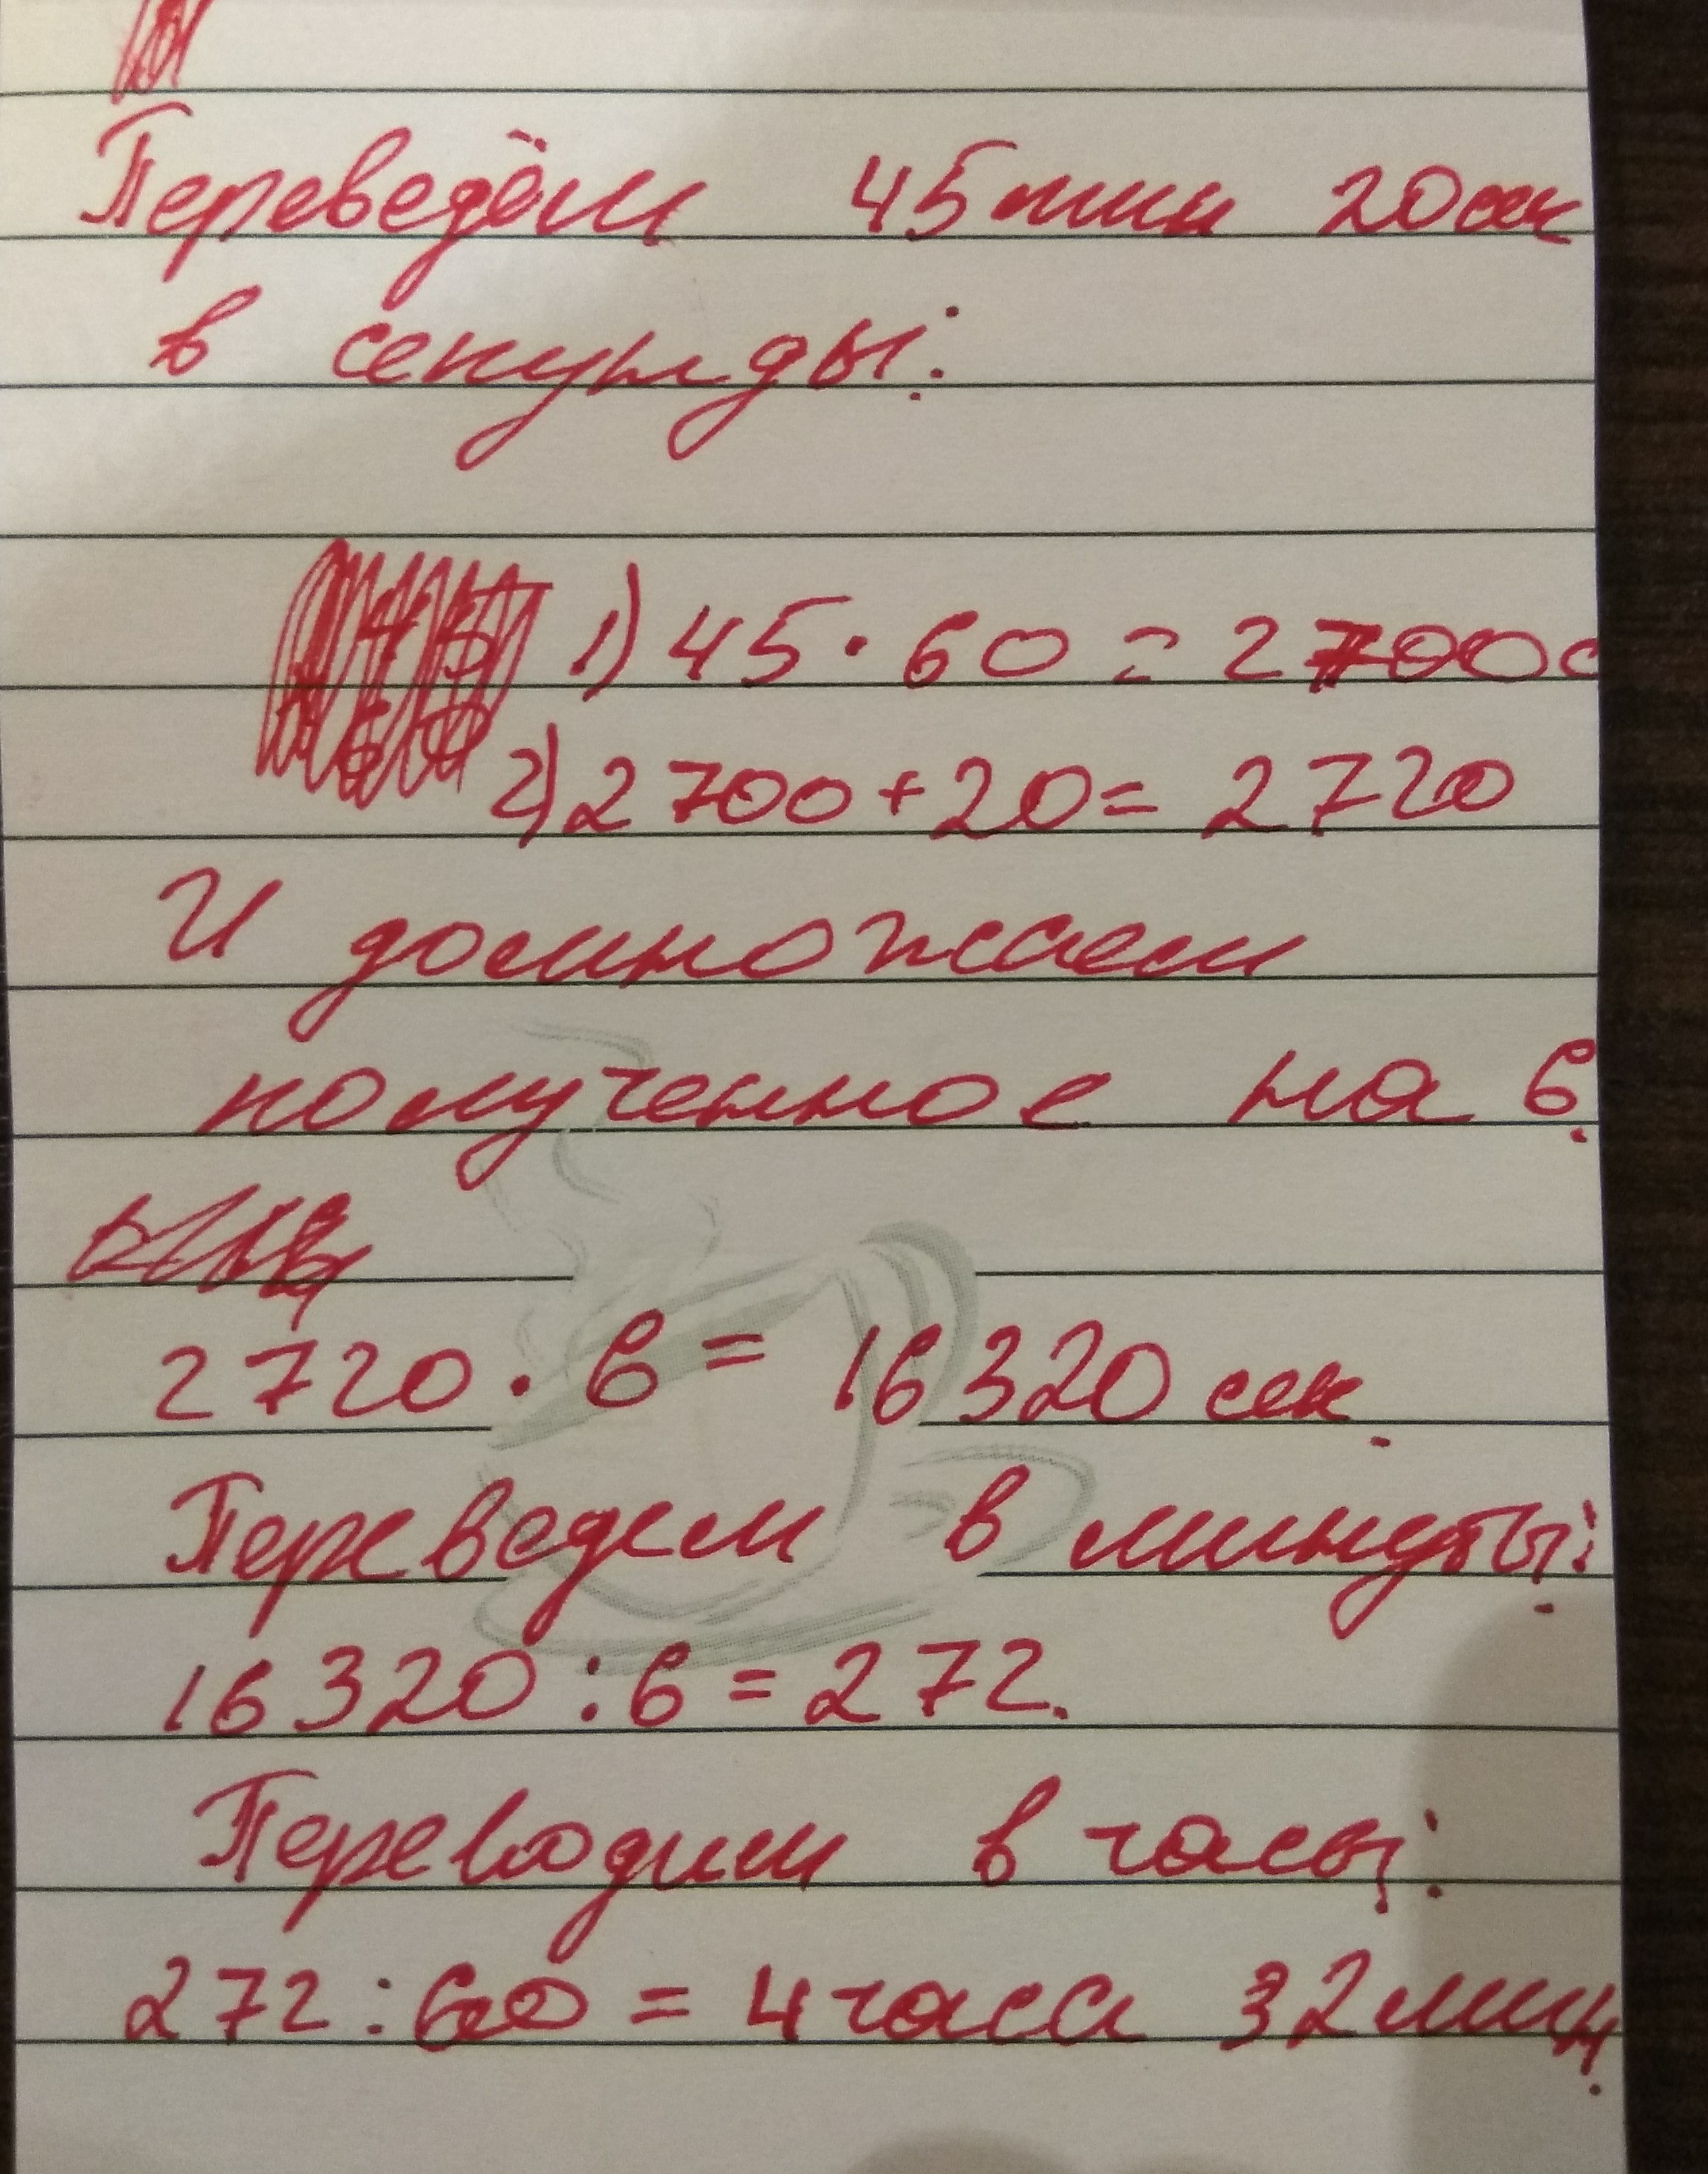 Переведём 45мин 20сек
в секунды:
1) 45 · 60 = 2700 с
2) 2700 + 20 = 2720
И домножаем
полученное на 6.
2720 · 6 = 16320 сек.
Переведем в минуты:
16320 : 6 = 272.
Переводим в часы:
272 : 60 = 4 часа 32 мин.